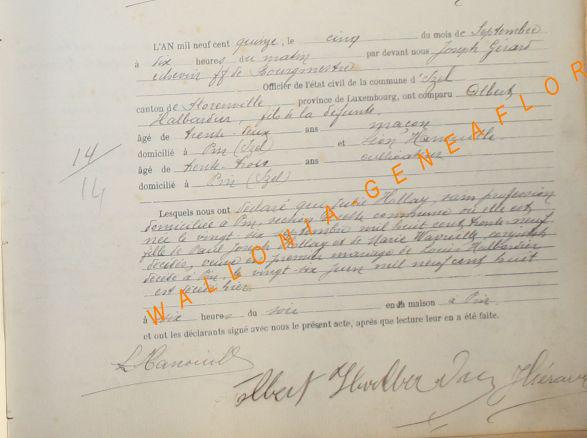 L'AN mil neuf cent quinze, le cinq du mois de Septembre
à dix heures du matin par devant nous Joseph Gérard
echevin ff de Bourgmestre
Officier de l'état civil de la commune d'Izel
canton de Florenville province de Luxembourg, ont comparu Albert
Halbardier, fils de la défunte,
âgé de trente-deux ans maçon
domicilié à Pin (Izel) et Léon Hanouille
âgé de trente trois ans cultivateur
domicilié à Pin (Izel)
14
14
Lesquels nous ont déclaré que Hollay, sans profession
domiciliée à Pin, section de cette commune où elle est
née le vingt six septembre mil huit cent trente neuf
fille de Paul Joseph Hollay et de Marie conjoints
décédés, veuve en premier mariage de Louis Halbardier
décédé à Pin, le vingt six juin mil neuf cent huit
est décédée hier
à six heures du soir en sa maison à Pin
et ont les déclarants signé avec nous le présent acte, après que lecture leur en a été faite.
Albert
WALLONIA GENEAFLOR